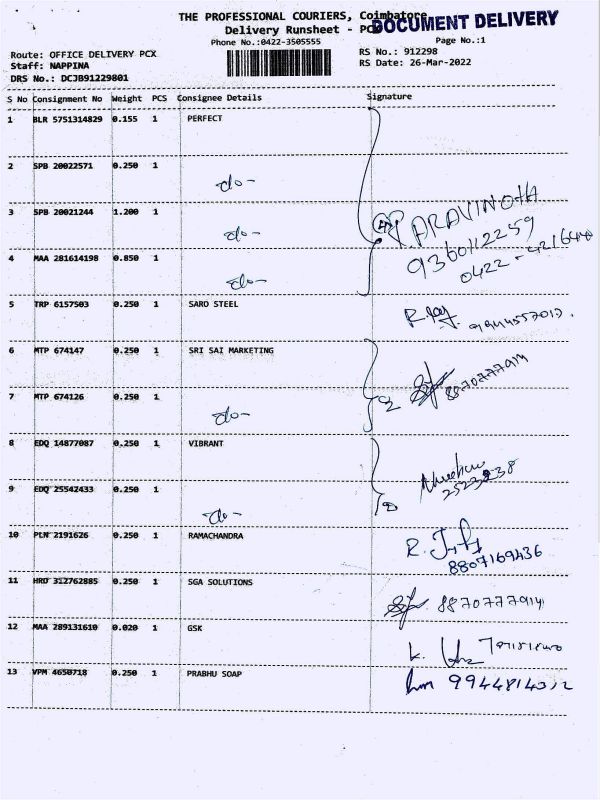 THE PROFESSIONAL COURIERS, Coimbatore
DOCUMENT DELIVERY
Delivery Runsheet - PCX
Phone No.:0422-3505555
Page No.:1
Route: OFFICE DELIVERY PCX
RS No.: 912298
Staff: NAPPINA
RS Date: 26-Mar-2022
DRS No.: DCJB91229801
S No Consignment No Weight PCS Consignee Details Signature
1 BLR 5751314829 0.155 1 PERFECT
2 SPB 20022571 0.250 1 -do-
3 SPB 20021244 1.200 1 -do-
P. ARAVINOTH
9360112259
4 MAA 281614198 0.850 1 -do-
5 TRP 6157503 0.250 1 SARO STEEL
6 MTP 674147 0.250 1 SRI SAI MARKETING
2
7 MTP 674126 0.250 1 -do-
8 EDQ 14877087 0.250 1 VIBRANT
9 EDQ 25542433 0.250 1 -do-
10 PLN 2191626 0.250 1 RAMACHANDRA
8807169436
11 HRD 312762885 0.250 1 SGA SOLUTIONS
12 MAA 289131610 0.020 1 GSK
13 VPM 4650718 0.250 1 PRABHU SOAP